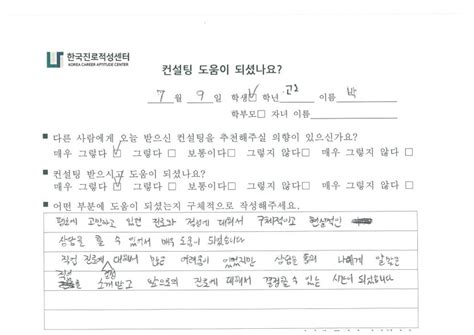 한국진로적성센터
KOREA CAREER APTITUDE CENTER
컨설팅 도움이 되셨나요?
7 월 9 일 학생☑ 학년 고2 이름 박
학부모□ 자녀 이름
■ 다른 사람에게 오늘 받으신 컨설팅을 추천해주실 의향이 있으신가요?
매우 그렇다 ☑ 그렇다 □ 보통이다□ 그렇지 않다□ 매우 그렇지 않다 □
■ 컨설팅 받으시고 도움이 되셨나요?
매우 그렇다 ☑ 그렇다 □ 보통이다□ 그렇지 않다□ 매우 그렇지 않다□
■ 어떤 부분에 도움이 되셨는지 구체적으로 작성해주세요.
평소에 고민하고 있던 진로와 적성에 대해서 구체적이고 현실적인
상담을 할 수 있어서 매우 도움이 되었습니다
직업 진로에 대해서 많은 어려움이 있었지만 상담을 통해 나에게 알맞은
직업 소개받고 앞으로의 진로에 대해서 결정할 수 있는 시간이 되었습니다